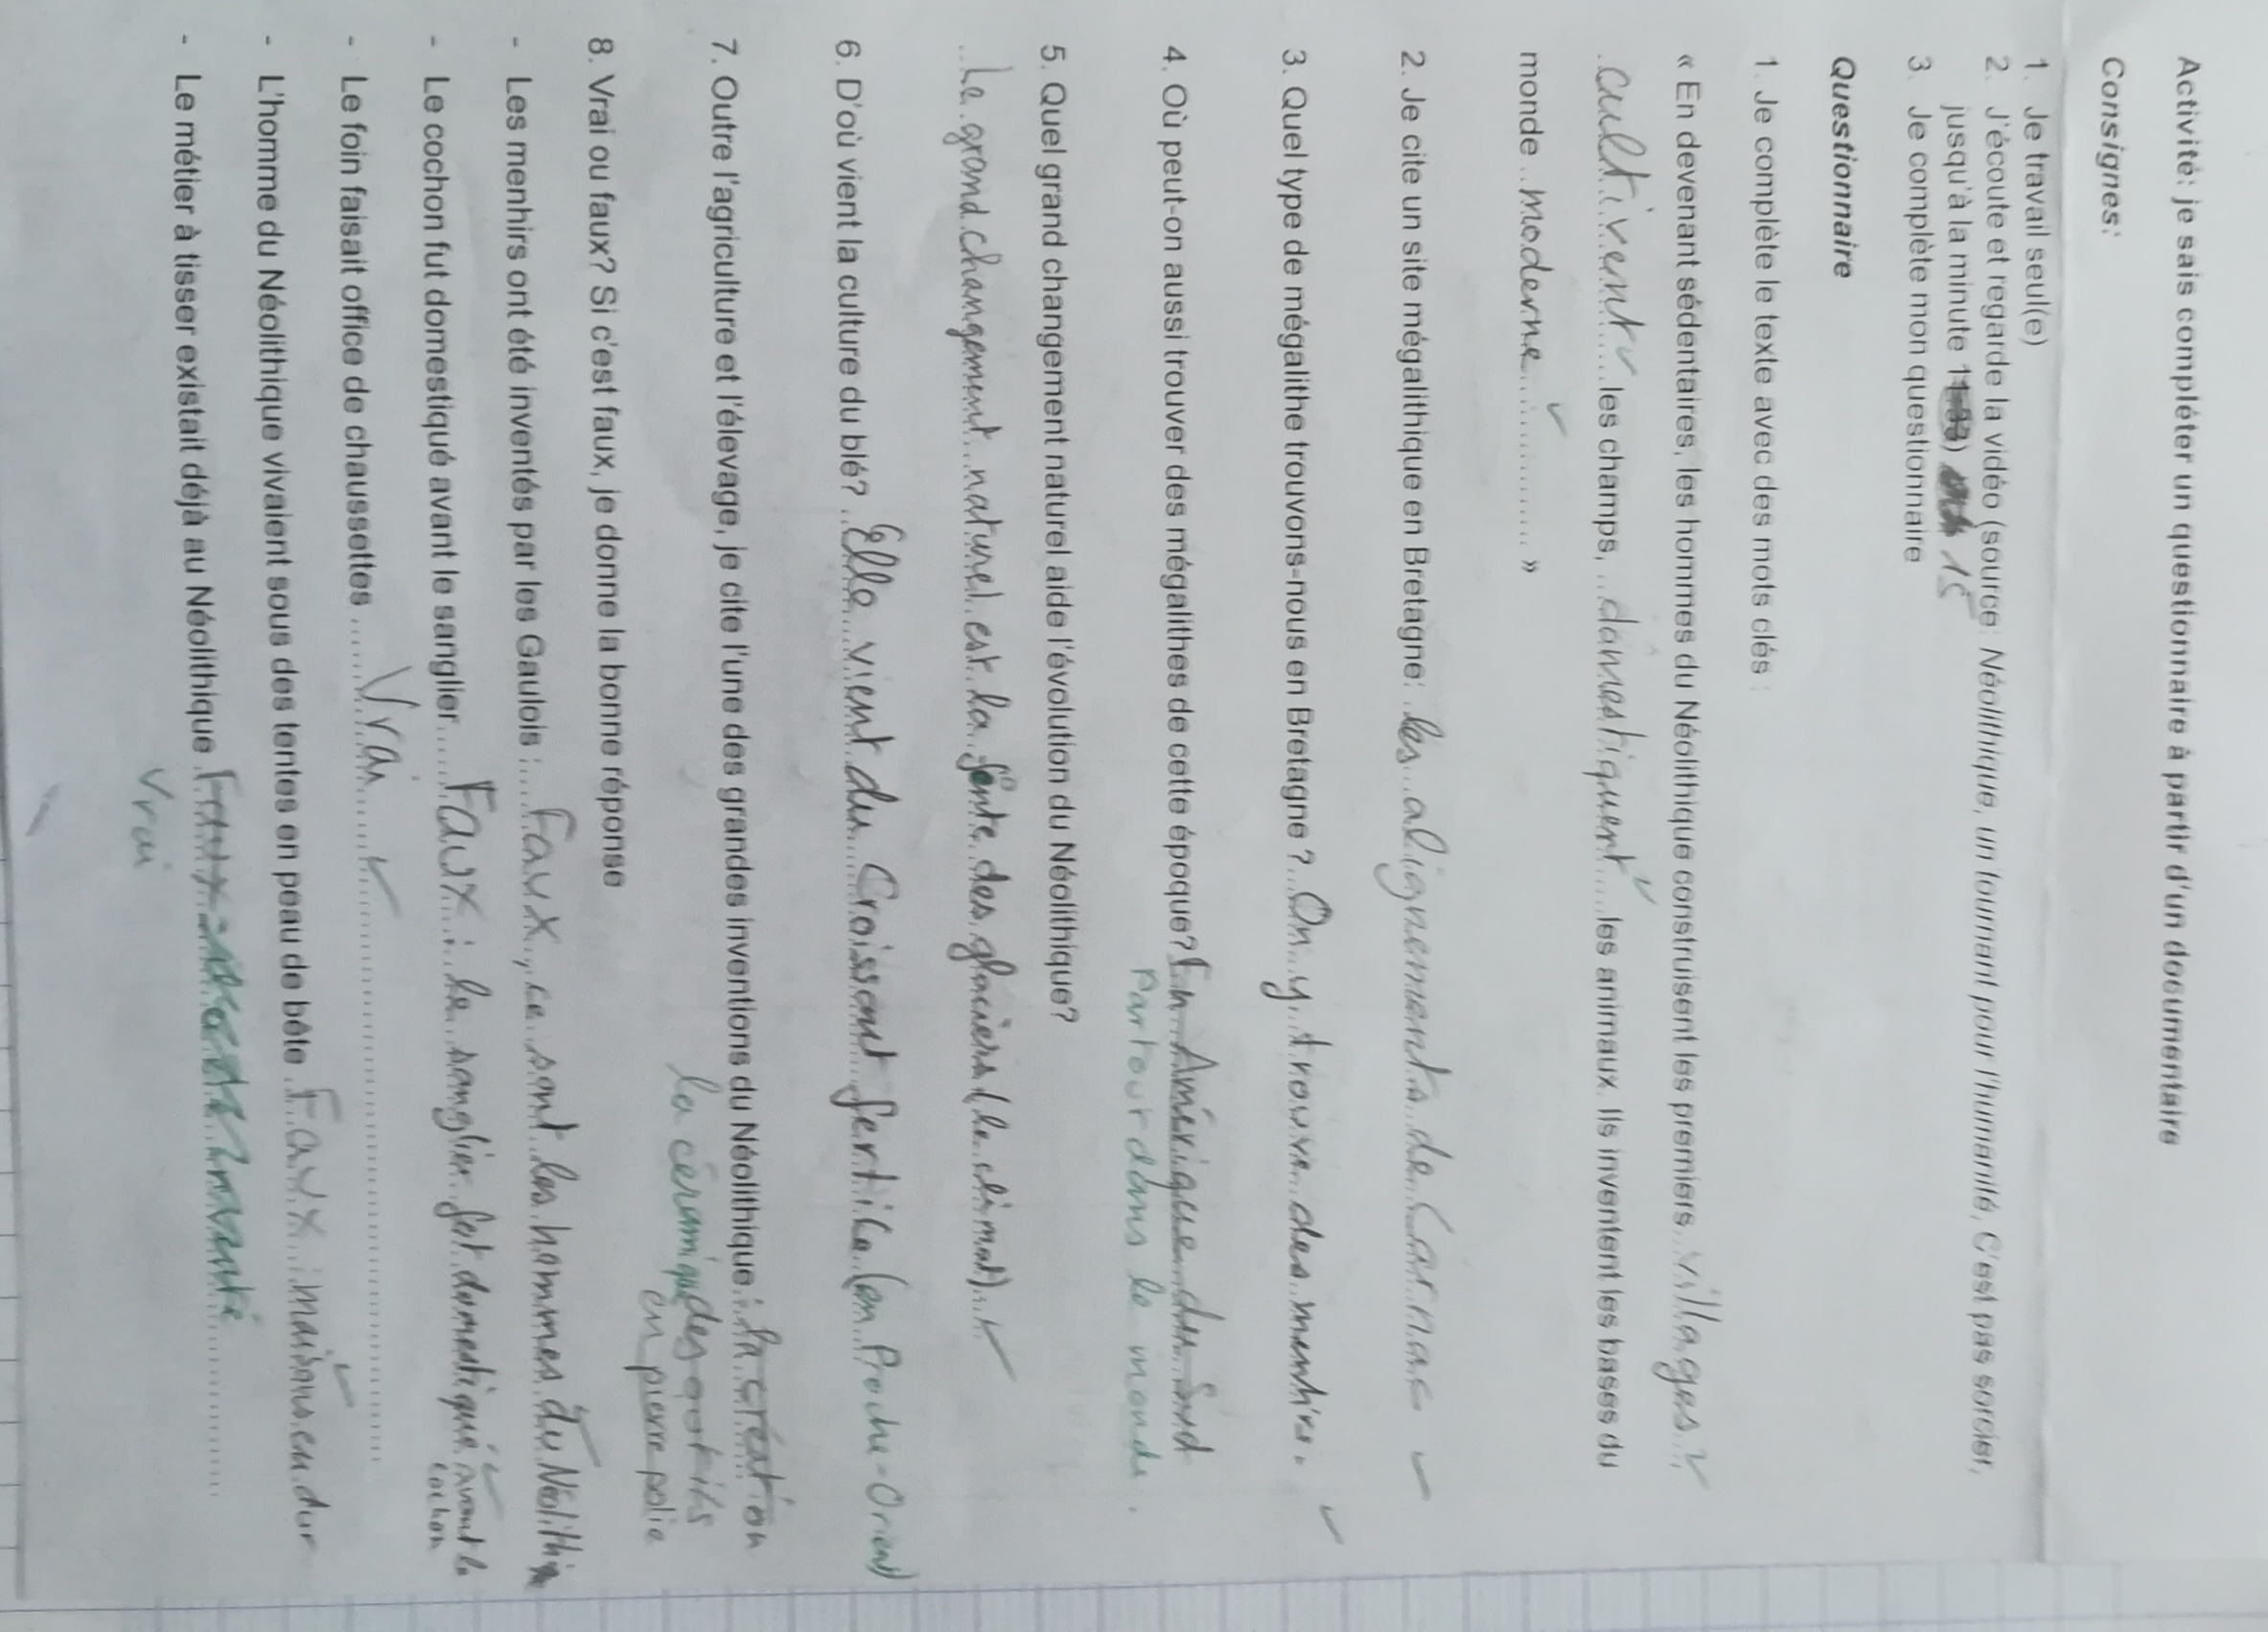 Activité: je sais compléter un questionnaire à partir d'un documentaire
Consignes:
1. Je travail seul(e)
2. J'écoute et regarde la vidéo (source: Néolithique, un tournant pour l'humanité, C'est pas sorcier,
jusqu'à la minute 15
3. Je complète mon questionnaire
Questionnaire
1. Je complète le texte avec des mots clés :
« En devenant sédentaires, les hommes du Néolithique construisent les premiers villages
cultivent les champs, domestiquent les animaux. Ils inventent les bases du
monde moderne »
2. Je cite un site mégalithique en Bretagne: les alignements de Carnac
3. Quel type de mégalithe trouvons-nous en Bretagne ? On y trouve des menhirs.
4. Où peut-on aussi trouver des mégalithes de cette époque? En Amérique du Sud
Partout dans le monde.
5. Quel grand changement naturel aide l'évolution du Néolithique?
Le grand changement naturel est la fonte des glaciers (le climat)
6. D'où vient la culture du blé? Elle vient du Croissant fertile (en Proche-Orient)
7. Outre l'agriculture et l'élevage, je cite l'une des grandes inventions du Néolithique : la création
la céramique des outils
en pierre polie
8. Vrai ou faux? Si c'est faux, je donne la bonne réponse
- Les menhirs ont été inventés par les Gaulois : Faux, ce sont les hommes du Néolithique
- Le cochon fut domestiqué avant le sanglier Faux : le sanglier fut domestiqué avant le
cochon
- Le foin faisait office de chaussettes Vrai
- L'homme du Néolithique vivaient sous des tentes en peau de bête Faux : maisons en dur
- Le métier à tisser existait déjà au Néolithique Faux
Vrai